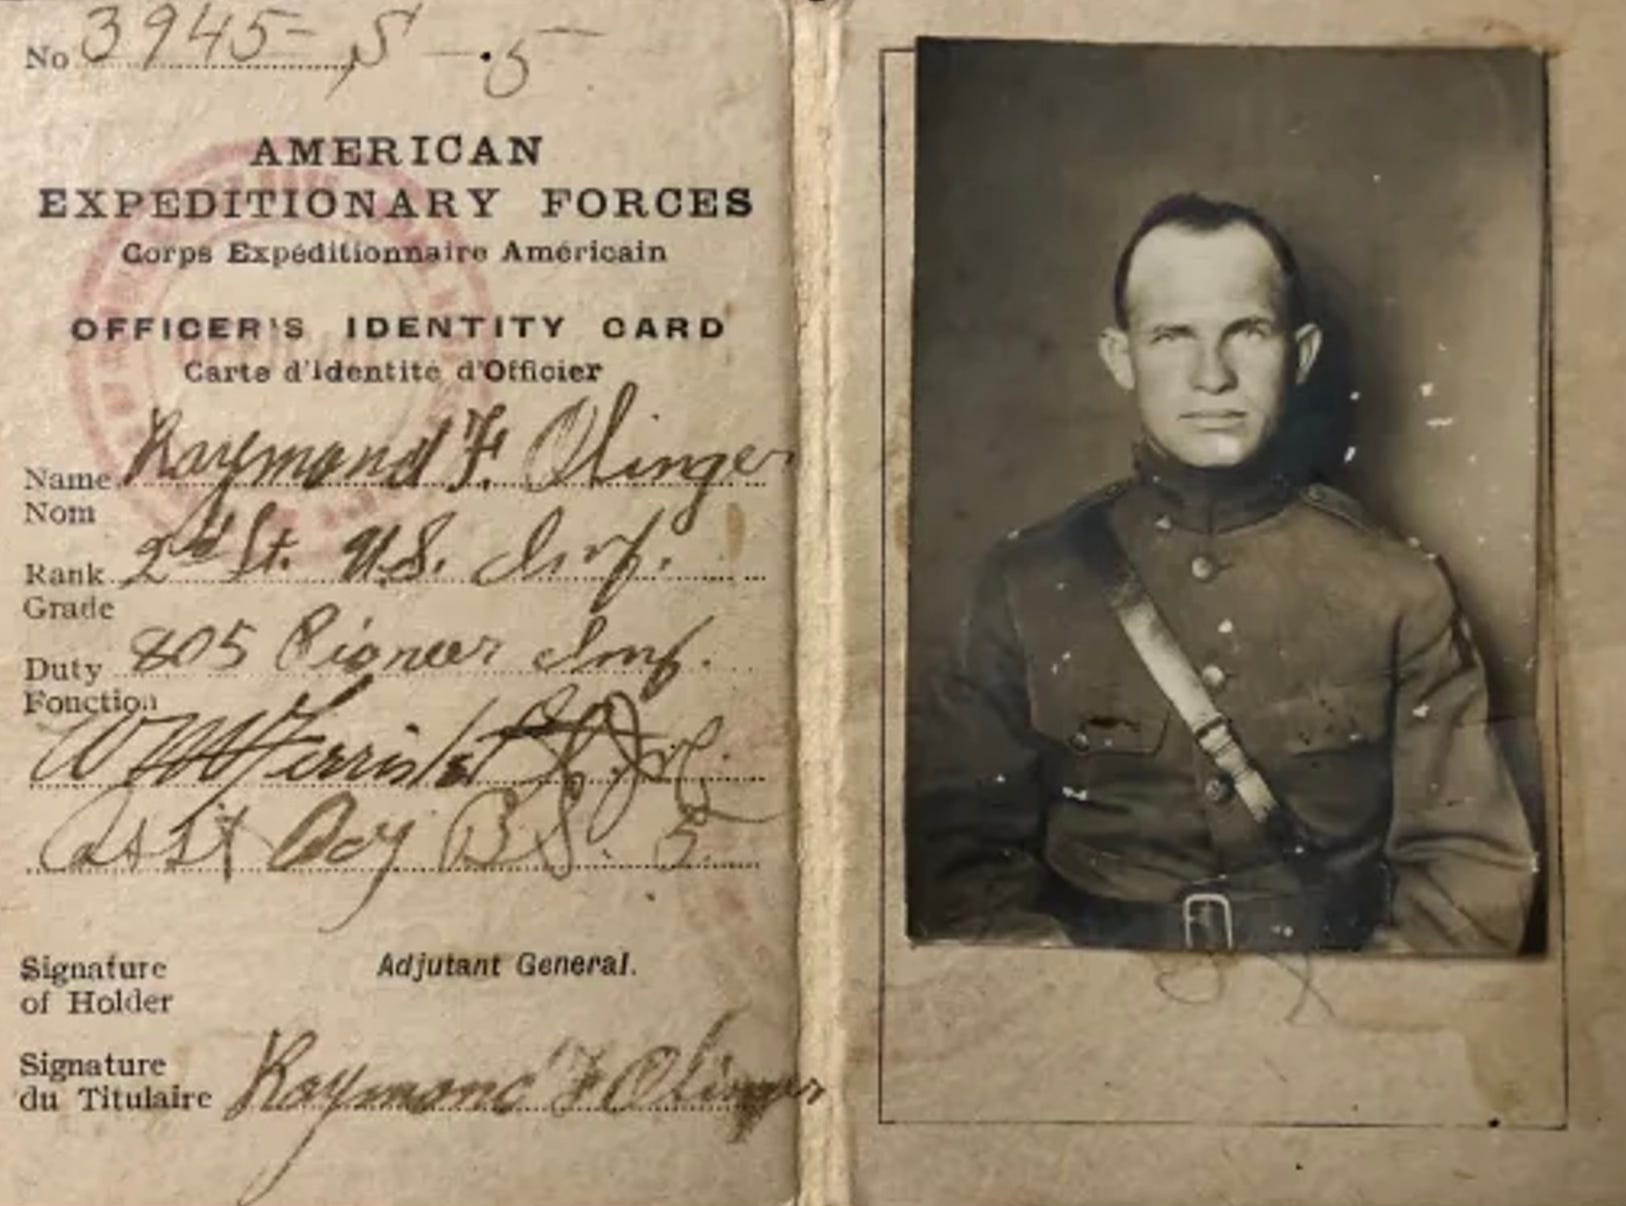 No 3945-S-5
AMERICAN
EXPEDITIONARY FORCES
Corps Expéditionnaire Américain
OFFICER'S IDENTITY CARD
Carte d'Identité d'Officier
Name Raymond F. Olinger
Nom
Rank 2d Lt. U.S. Inf.
Grade
Duty 805 Pioneer Inf.
Fonction
Ferris 1st Lt Inf.
Asst Adj B.S. 5.
Adjutant General.
Signature
of Holder
Signature
du Titulaire Raymond F Olinger